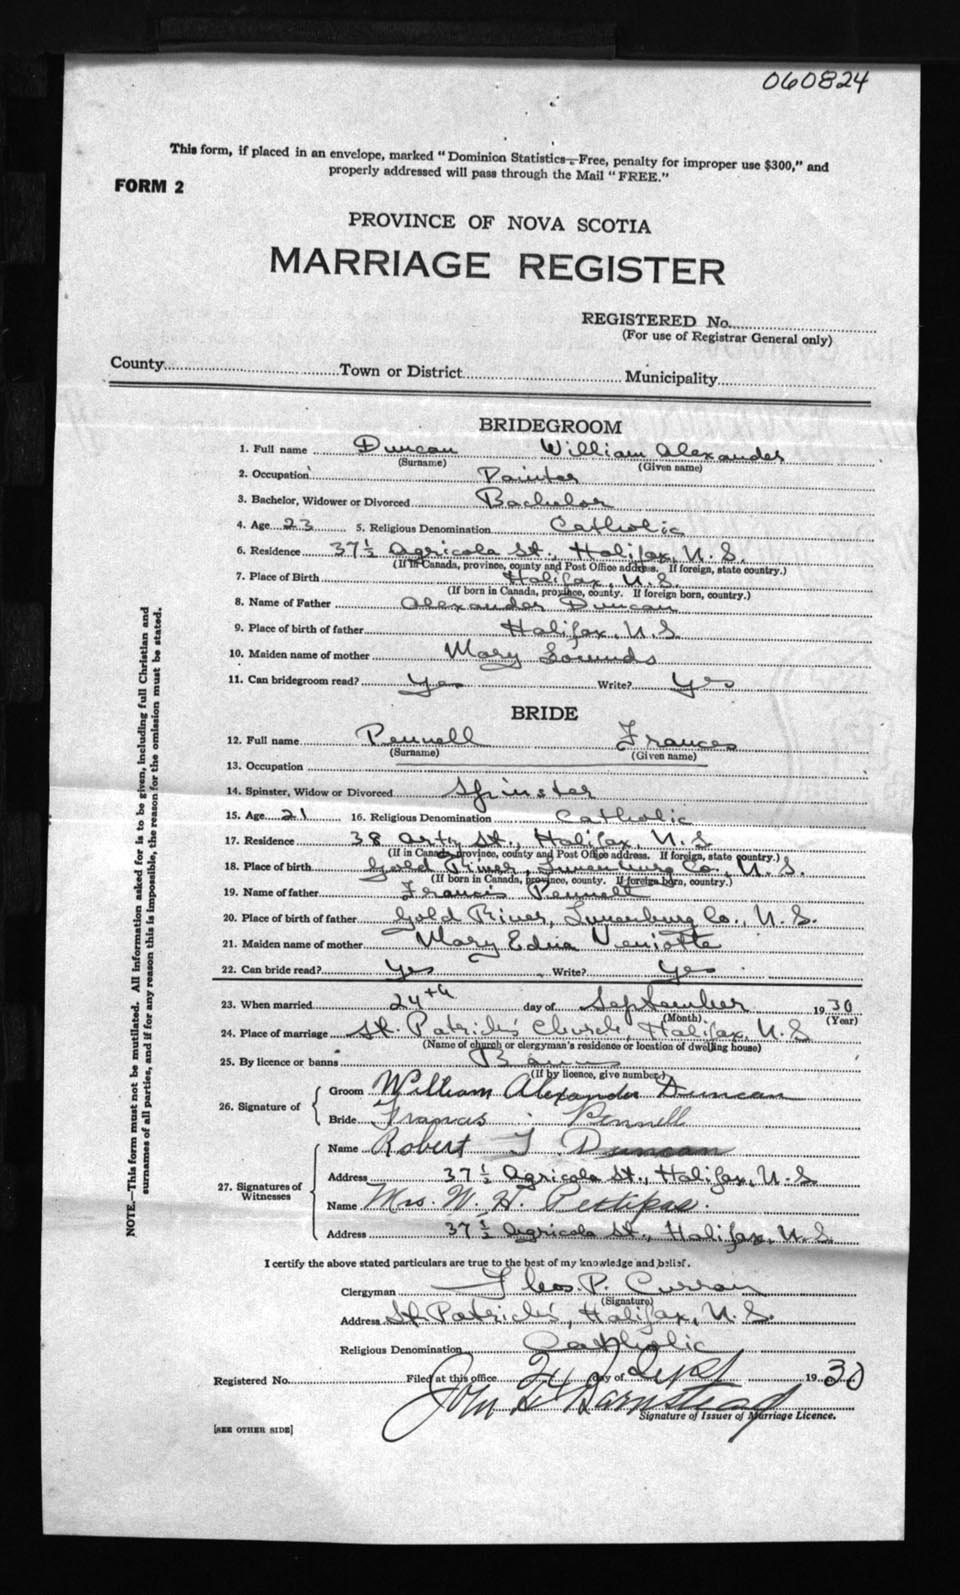 060824
This form, if placed in an envelope, marked "Dominion Statistics—Free, penalty for improper use $300," and
properly addressed will pass through the Mail "FREE."
FORM 2
PROVINCE OF NOVA SCOTIA
MARRIAGE REGISTER
REGISTERED No.
(For use of Registrar General only)
County Town or District Municipality
BRIDEGROOM
1. Full name Duncan William Alexander
(Surname) (Given name)
2. Occupation Painter
3. Bachelor, Widower or Divorced Bachelor
4. Age 23 5. Religious Denomination Catholic
6. Residence 37½ Agricola St., Halifax, N.S.
(If in Canada, province, county and Post Office address. If foreign, state country.)
7. Place of Birth Halifax, N.S.
(If born in Canada, province, county. If foreign born, country.)
8. Name of Father Alexander Duncan
9. Place of birth of father Halifax, N.S
10. Maiden name of mother Mary
11. Can bridegroom read? Yes Write? Yes
BRIDE
12. Full name Pennell Frances
(Surname) (Given name)
13. Occupation
14. Spinster, Widow or Divorced Spinster
15. Age 21 16. Religious Denomination Catholic
17. Residence 38 Arty St., Halifax, N.S
(If in Canada, province, county and Post Office address. If foreign, state country.)
18. Place of birth Gold River, Lunenburg Co., N.S.
(If born in Canada, province, county. If foreign born, country.)
19. Name of father Francis Pennell
20. Place of birth of father Gold River, Lunenburg Co., N.S.
21. Maiden name of mother Mary Edna Veniotte
22. Can bride read? Yes Write? Yes
23. When married 24th day of September 1930
(Month) (Year)
24. Place of marriage St. Patrick's Church, Halifax, N.S
(Name of church or clergyman's residence or location of dwelling house)
25. By licence or banns Banns
(If by licence, give number)
26. Signature of Groom William Alexander Duncan
Bride Frances Pennell
27. Signatures of Witnesses Name Robert J. Duncan
Address 37½ Agricola St., Halifax, N.S
Name Mrs. W. H. Petitpas.
Address 37½ Agricola St., Halifax, N.S.
I certify the above stated particulars are true to the best of my knowledge and belief.
Clergyman Theos. P. Curran
(Signature)
Address St. Patrick's, Halifax, N.S.
Religious Denomination Catholic
Registered No. Filed at this office day of Sept 1930
John H Barnstead
Signature of Issuer of Marriage Licence.
[SEE OTHER SIDE]
NOTE.—This form must not be mutilated. All information asked for is to be given, including full Christian and
surnames of all parties, and if for any reason this is impossible, the reason for the omission must be stated.